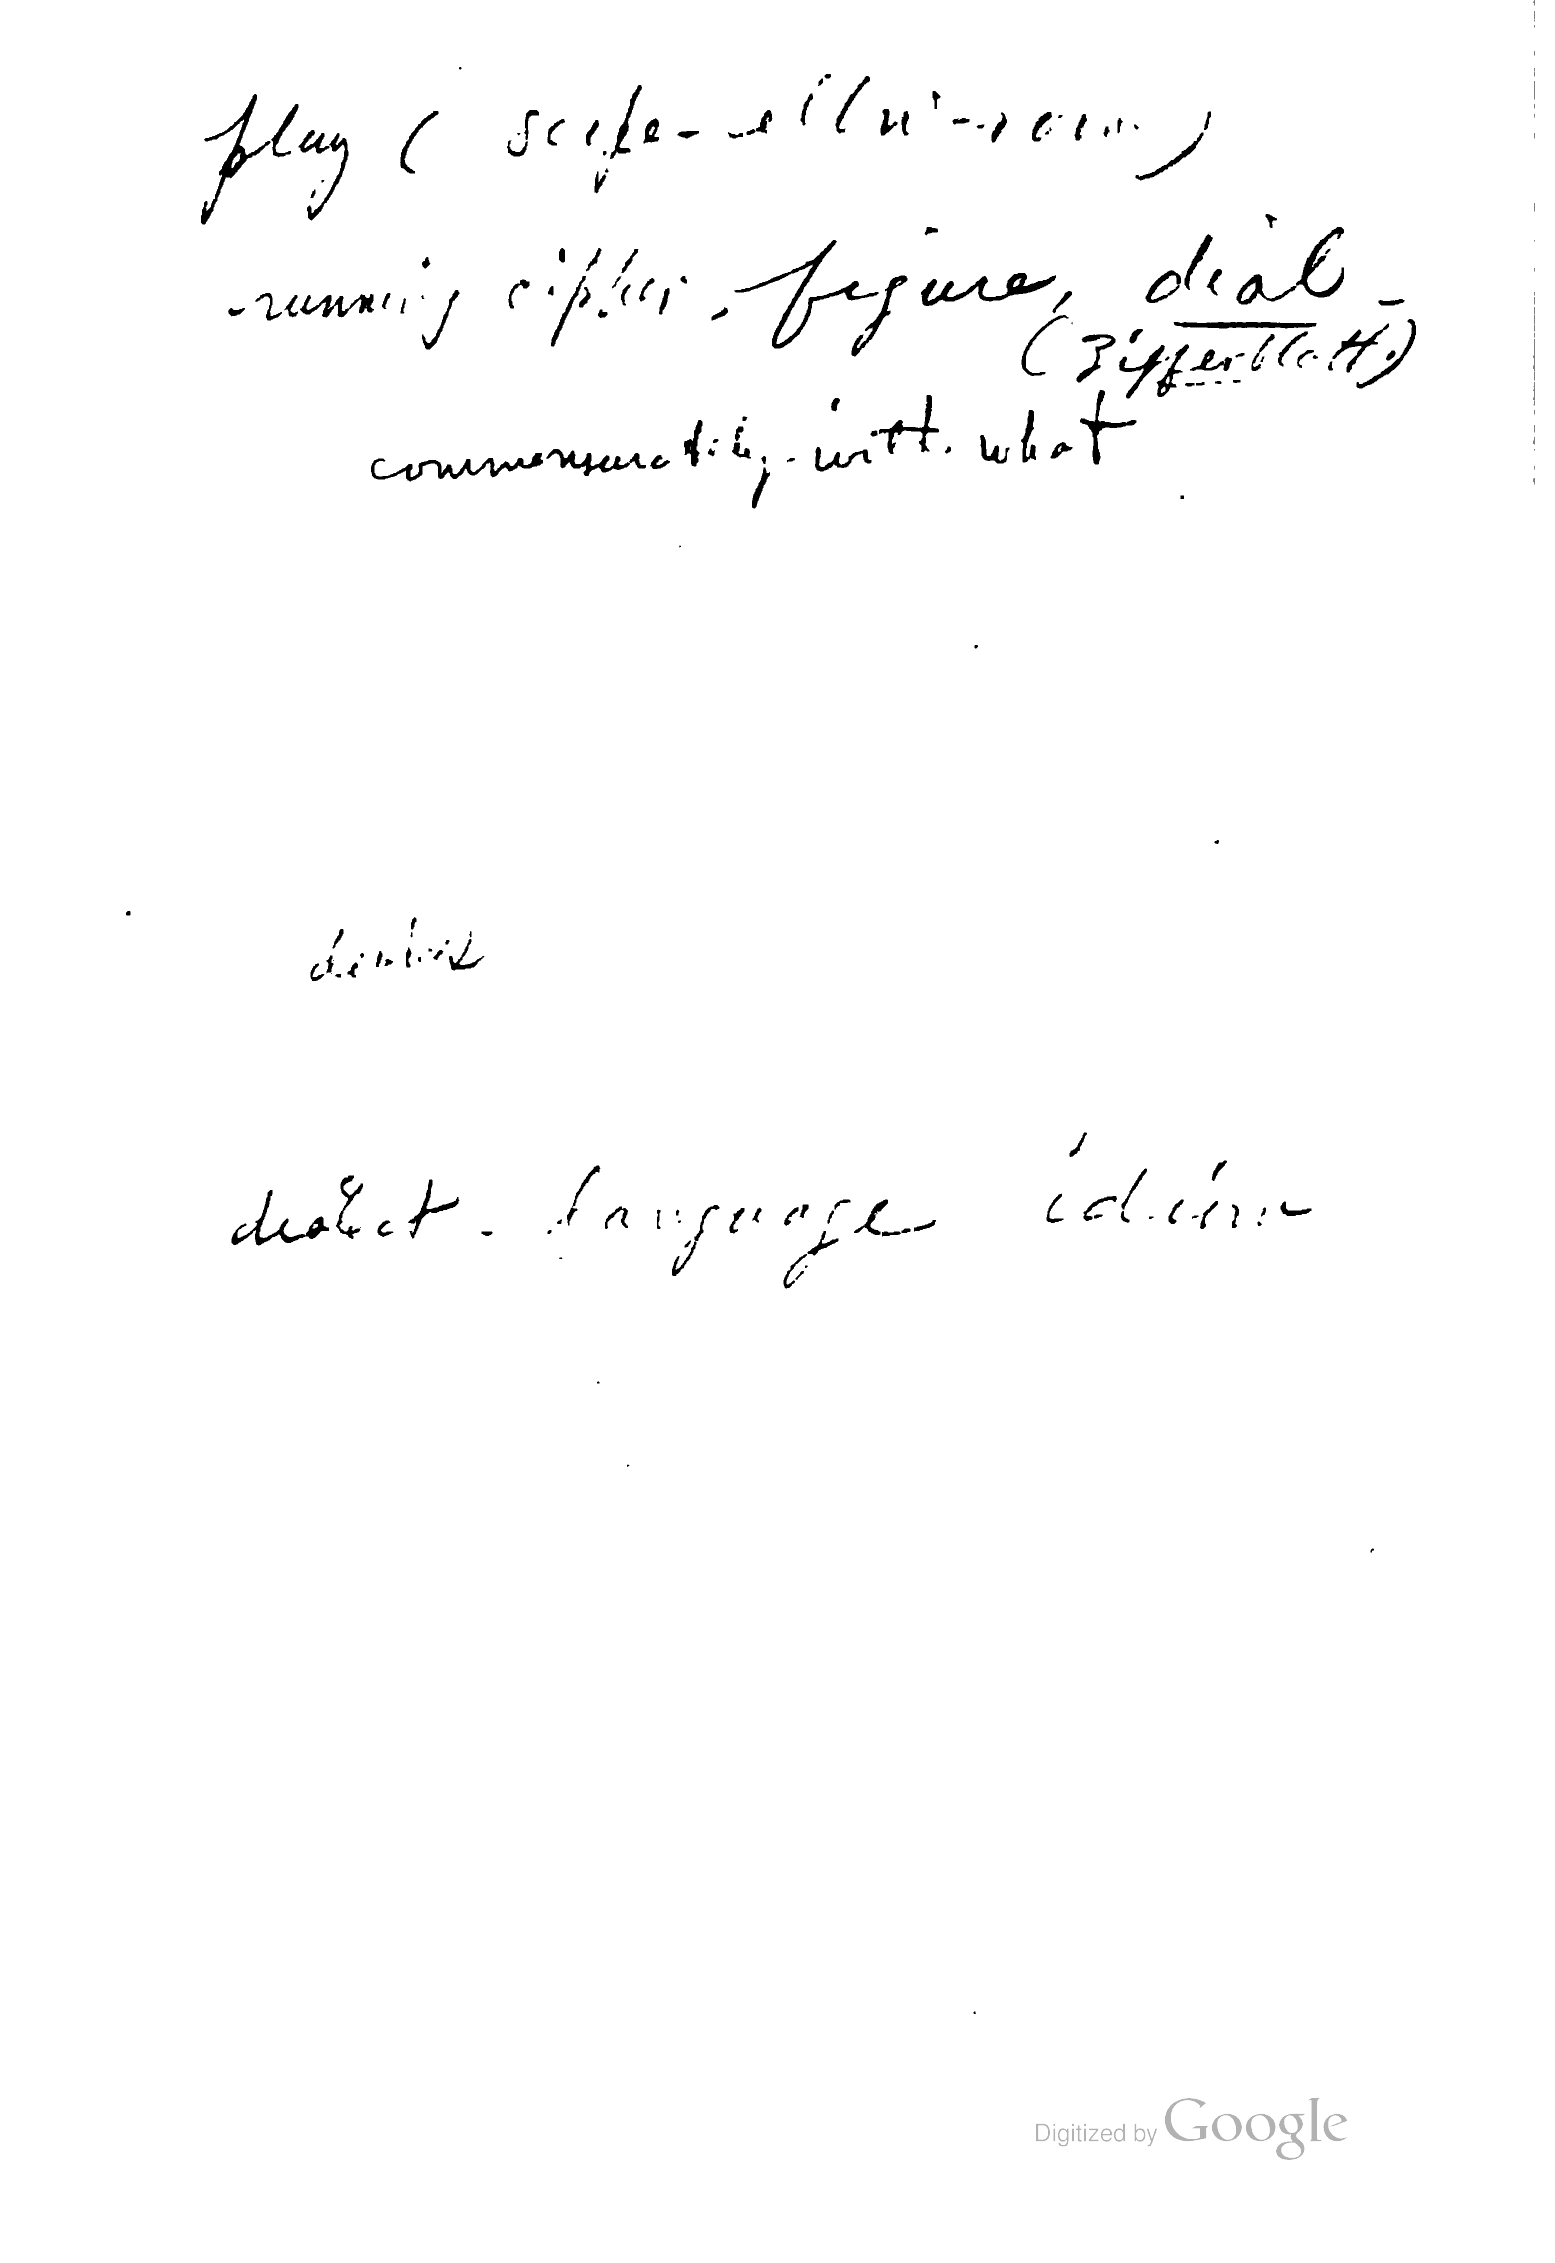 play (scope - elbow-room)
running cipher, figure, dial -
(Zifferblatt.)
commensurability with what
dialect - language idiom
Digitized by Google